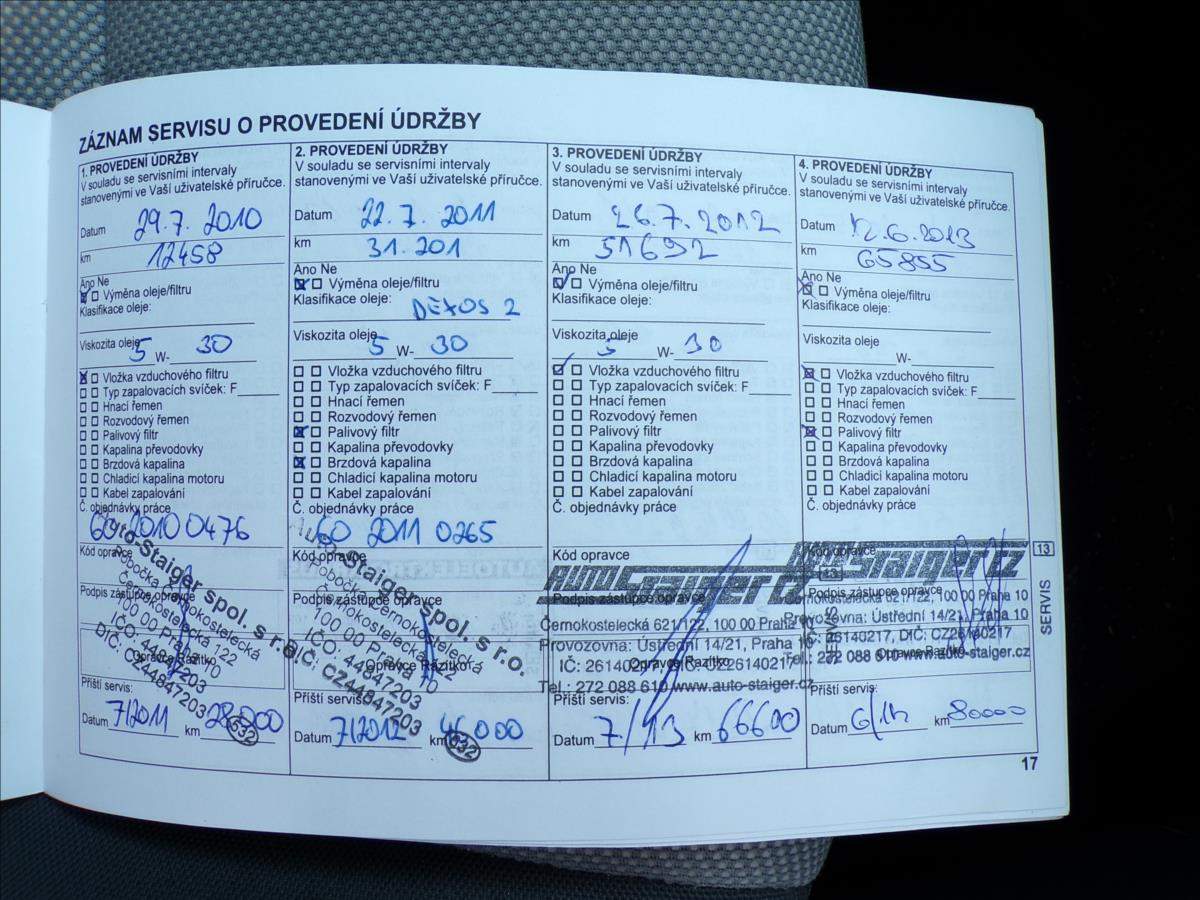 ZÁZNAM SERVISU O PROVEDENÍ ÚDRŽBY
1. PROVEDENÍ ÚDRŽBY
V souladu se servisními intervaly
stanovenými ve Vaší uživatelské příručce.
Datum 29.7. 2010
km 12458
Ano Ne
Výměna oleje/filtru
Klasifikace oleje:
Viskozita oleje
5 W- 30
Vložka vzduchového filtru
Typ zapalovacích svíček: F
Hnací řemen
Rozvodový řemen
Palivový filtr
Kapalina převodovky
Brzdová kapalina
Chladicí kapalina motoru
Kabel zapalování
Č. objednávky práce
60 2010 0476
Kód opravce
Podpis zástupce opravce
Opravce Razítko
Auto-Staiger spol. s r.o.
Pobočka Černokostelecká
Černokostelecká 122
100 00 Praha 10
IČO: 44847203
DIČ: CZ44847203
532
Příští servis:
Datum 7/2011 km 28000
2. PROVEDENÍ ÚDRŽBY
V souladu se servisními intervaly
stanovenými ve Vaší uživatelské příručce.
Datum 22.7. 2011
km 31.201
Ano Ne
Výměna oleje/filtru
Klasifikace oleje:
DEXOS 2
Viskozita oleje
5 W- 30
Vložka vzduchového filtru
Typ zapalovacích svíček: F
Hnací řemen
Rozvodový řemen
Palivový filtr
Kapalina převodovky
Brzdová kapalina
Chladicí kapalina motoru
Kabel zapalování
Č. objednávky práce
60 2011 0265
Kód opravce
Podpis zástupce opravce
Opravce Razítko
Auto-Staiger spol. s r.o.
Pobočka Černokostelecká
Černokostelecká 122
100 00 Praha 10
IČO: 44847203
DIČ: CZ44847203
532
Příští servis:
Datum 7/2012 km 46000
3. PROVEDENÍ ÚDRŽBY
V souladu se servisními intervaly
stanovenými ve Vaší uživatelské příručce.
Datum 26.7.2012
km 51692
Ano Ne
Výměna oleje/filtru
Klasifikace oleje:
Viskozita oleje
5 W- 30
Vložka vzduchového filtru
Typ zapalovacích svíček: F
Hnací řemen
Rozvodový řemen
Palivový filtr
Kapalina převodovky
Brzdová kapalina
Chladicí kapalina motoru
Kabel zapalování
Č. objednávky práce
Kód opravce
AUTO Staiger.cz
Podpis zástupce opravce
Černokostelecká 621/122, 100 00 Praha
Provozovna: Ústřední 14/21, Praha 10
Opravce Razítko
Tel.: 272 088 610 www.auto-staiger.cz
Příští servis:
Datum 7/13 km 66600
4. PROVEDENÍ ÚDRŽBY
V souladu se servisními intervaly
stanovenými ve Vaší uživatelské příručce.
Datum 12.6.2013
km 65855
Ano Ne
Výměna oleje/filtru
Klasifikace oleje:
Viskozita oleje
W-
Vložka vzduchového filtru
Typ zapalovacích svíček: F
Hnací řemen
Rozvodový řemen
Palivový filtr
Kapalina převodovky
Brzdová kapalina
Chladicí kapalina motoru
Kabel zapalování
Č. objednávky práce
Kód opravce
AUTO Staiger.cz
Podpis zástupce opravce
Černokostelecká 621/122, 100 00 Praha 10
Provozovna: Ústřední 14/21, Praha 10
IČ: 26140217, DIČ: CZ26140217
Opravce Razítko
Tel.: 272 088 610 www.auto-staiger.cz
Příští servis:
Datum 6/14 km 80000
13
SERVIS
17